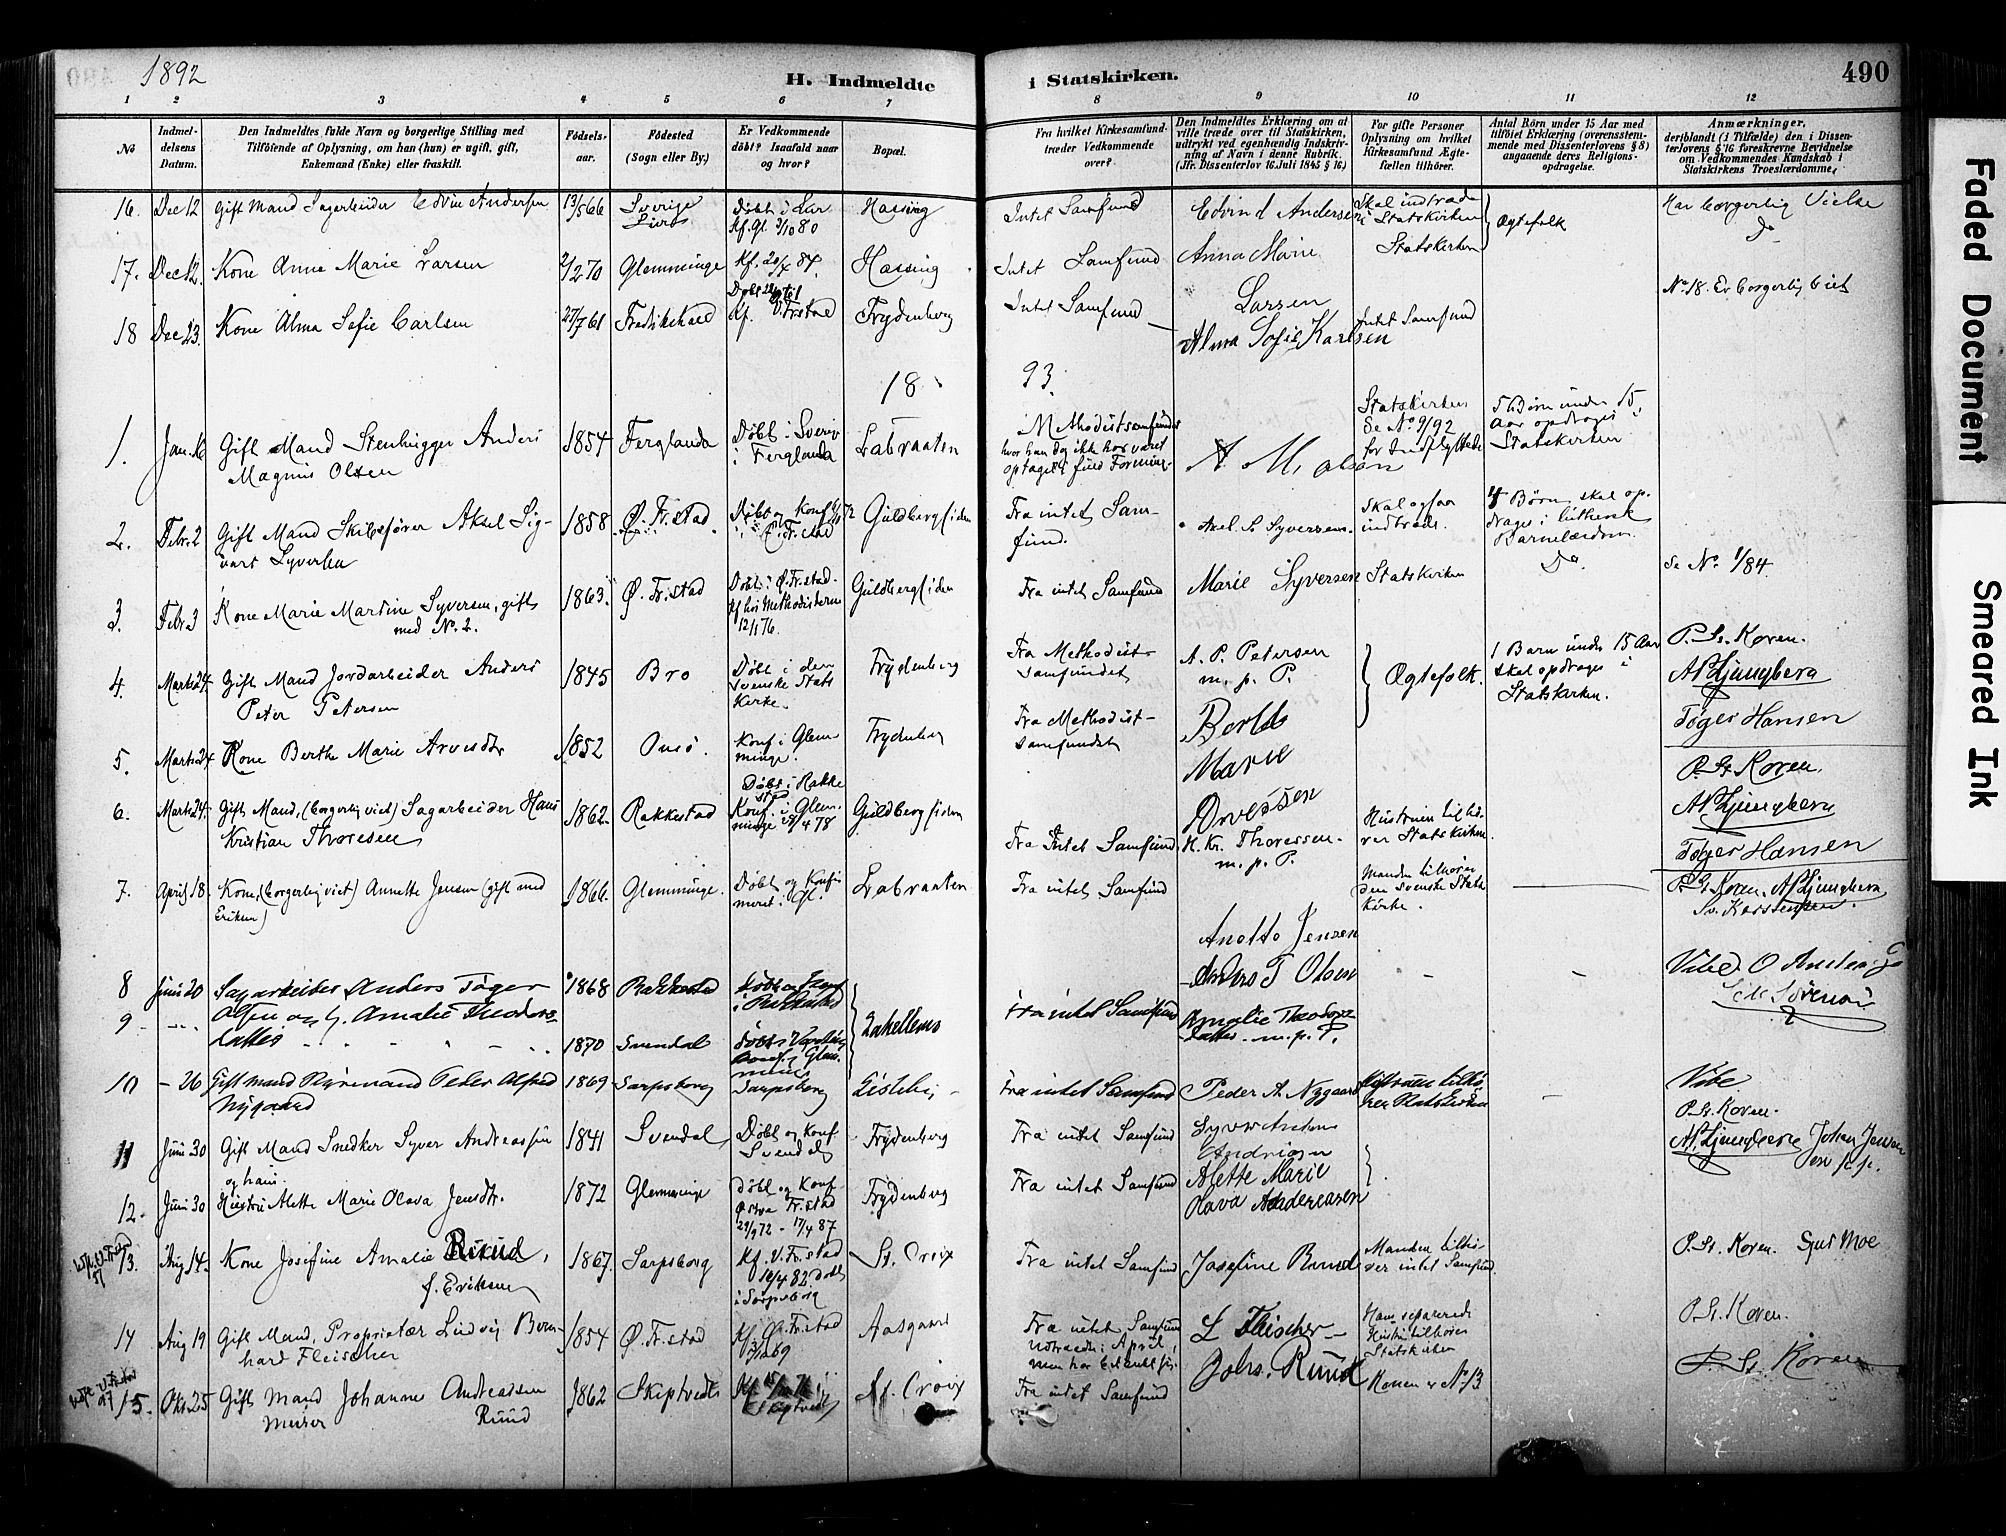 1892
H. Indmeldte i Statskirken.
490
1 2 3 4 5 6 7 8 9 10 11 12
No
Indmel-
delsens
Datum.
Den Indmeldtes fulde Navn og borgerlige Stilling med
Tilföiende af Oplysning, om han (hun) er ugift, gift,
Enkemand (Enke) eller fraskilt.
Fødsels-
aar.
Födested
(Sogn eller By.)
Er Vedkommende
döbt? Isaafald naar
og hvor?
Bopæl.
Fra hvilket Kirkesamfund
træder Vedkommende
over?
Den Indmeldtes Erklæring om at
ville træde over til Statskirken,
udtrykt ved egenhændig Indskriv-
ning af Navn i denne Rubrik.
(Jfr. Dissenterlov 16. Juli 1845 § 16.)
For gifte Personer
Oplysning om hvilket
Kirkesamfund Ægte-
fællen tilhörer.
Antal Börn under 15 Aar med
tilföiet Erklæring (overensstem-
mende med Dissenterlovens § 8)
angaaende deres Religions-
opdragelse.
Anmærkninger,
deriblandt (i Tilfælde) den i Dissen-
terlovens § 16 foreskrevne Bevidnelse
om Vedkommendes Kundskab i
Statskirkens Troeslærdomme.
16. Dec 12 Gift Mand Sagarbeider Edvin Andersen 13/5 66 Sverige Döbt i Lur Kf. Gl. 3/10 80 Hassing
Intet Samfund Edvind Andersen Skal indtræde i Statskirken Ægtefolk Har borgerlig Vielse
17. Dec 12. Kone Anna Marie Larsen 2/2 70 Glemminge Hassing
Intet Samfund Anna Marie Larsen Statskirken Do
18 Dec 23. Kone Alma Sofie Carlsen 27/7 61 Fredrikshald Kf. V. Frstad Frydenberg
Intet Samfund Alma Sofie Karlsen Intet Samfund No 18. Er borgerlig viet
18 93.
1. Jan. 16 Gift Mand Stenhugger Anders
Magnus Olsen
1854 Ferglanda Döbt i Sverig i Ferglanda Labraaten
Methodistsamfundet
hvor han dog ikke har været
optaget i fuld Forening.
A. M. olsen
Statskirken
Se No 9/92
for Indflyttede
5 Börn under 15
Aar opdrages i
Statskirken
2. Febr. 2 Gift Mand Skibsförer Aksel Sig-
vart Syversen
1858. Ø. Fr.stad Guldbergsiden
Fra intet Sam-
fund.
Axel S. Syversen.
Skal ogsaa
indtræde.
4 Börn skal op-
drages i luthersk
Barnelærdom.
3. Febr. 3 Kone Marie Martine Syversen, gift
med No. 2.
1863. Ø. Fr.stad Döbt i Ø. Fr.stad.
Kf hos Methodisterne
12/11 76.
Guldbergsiden
Fra intet Samfund Marie Syversen Statskirken Do. Se No. 1/84
4. Marts 24. Gift Mand Jordarbeider Anders
Peter Petersen
1845 Bro Döbt i den
svenske Stats
Kirke.
Frydenberg
Fra Methodist-
samfundet
A. P. Petersen
m. p. P.
Ægtefolk.
1 Barn under 15 Aar
skal opdrages i
Statskirken.
P. St. Koren.
A P Ljungberg
Töger Hansen
5. Marts 24 Kone Berthe Marie Arvesdtr
1852 Onsö. Konf. i Glem-
minge.
Frydenberg
Fra Methodist-
samfundet
Marie
Arvessen
P. St. Koren.
A P Ljungberg
Töger Hansen
6. Marts 24. Gift Mand, (borgerlig viet) Sagarbeider Hans
Kristian Thoresen
1862. Rakkestad Döbt i Rakke
std
Konf. i Glem-
minge 28/4 78
Guldbergsiden
Fra Intet Samfund. H. Kr. Thoressen.
m. p. P.
Hustruen tilhö-
rer Statskirken.
7. April 18. Kone, (borgerlig viet) Annette Jensen (gift med
Eriksen)
1866. Glemminge. Döbt og Konfir-
meret i Gl.
Labraaten
Fra intet Samfund
Anette Jensen
Manden tilhörer
den svenske Stats
Kirke.
P. St. Koren. A P Ljungberg
8 Juni 20 Sagarbeider Anders Töger
Olsen og h. Amalie Theodors-
datter
1868 Rakkestad Zakellemo
Fra intet Samfund
Anders T Olsen
9 1870 Svendal
Amalie Theodors-
datter. m. p. P.
10 – 26 Gift mand Styrmand Peder Alfred
Nygaard
1869 Sarpsborg Sarpsborg Lisleby
Fra intet Samfund Peder A. Nygaard Hustruen tilhö
rer Statskirken
Vibe
P. St. Koren.
11 Juni 30 Gift Mand Snedker Syver Andreassen
og hans
1841 Svendal Döbt og Konf.
Svendal
Frydenberg
Fra intet Samfund
A P Ljungberg Johan Jensen
12. Juni 30 Hustru Alette Marie Olava Jensdtr.
1872 Glemminge Döbt og Konf.
Østre Fr.stad
29/9 72 – 17/4 87
Frydenberg
Fra intet Samfund Alette Marie
Olava Andereasen
13. Aug 14. Kone Josefine Amalie Ruud,
f. Eriksen
1867. Sarpsborg Kf. V. Fr.stad
16/4 82. Döbt
i Sarpsborg
St. Croix
Fra intet Samfund Josefine Ruud Manden tilhö-
rer intet Samfund.
P. St. Koren. Syver Moe
14 Aug 19 Gift Mand, Proprietær Ludvig Bern-
hard Fleischer
1854 Ø. Fr.stad Aasgaard
Fra intet Samfund
udtraadte i April,
L Fleischer
Hans separerede
Hustru tilhörer
Statskirken
P. St. Koren.
15. Okt. 25 Gift Mand Johannes Andreassen
Murer Ruud
1862 Skiptvedt St. Croix
Fra intet Samfund Johs. Ruud Konen er No 13
P. St. Koren
Faded Document
Smeared Ink